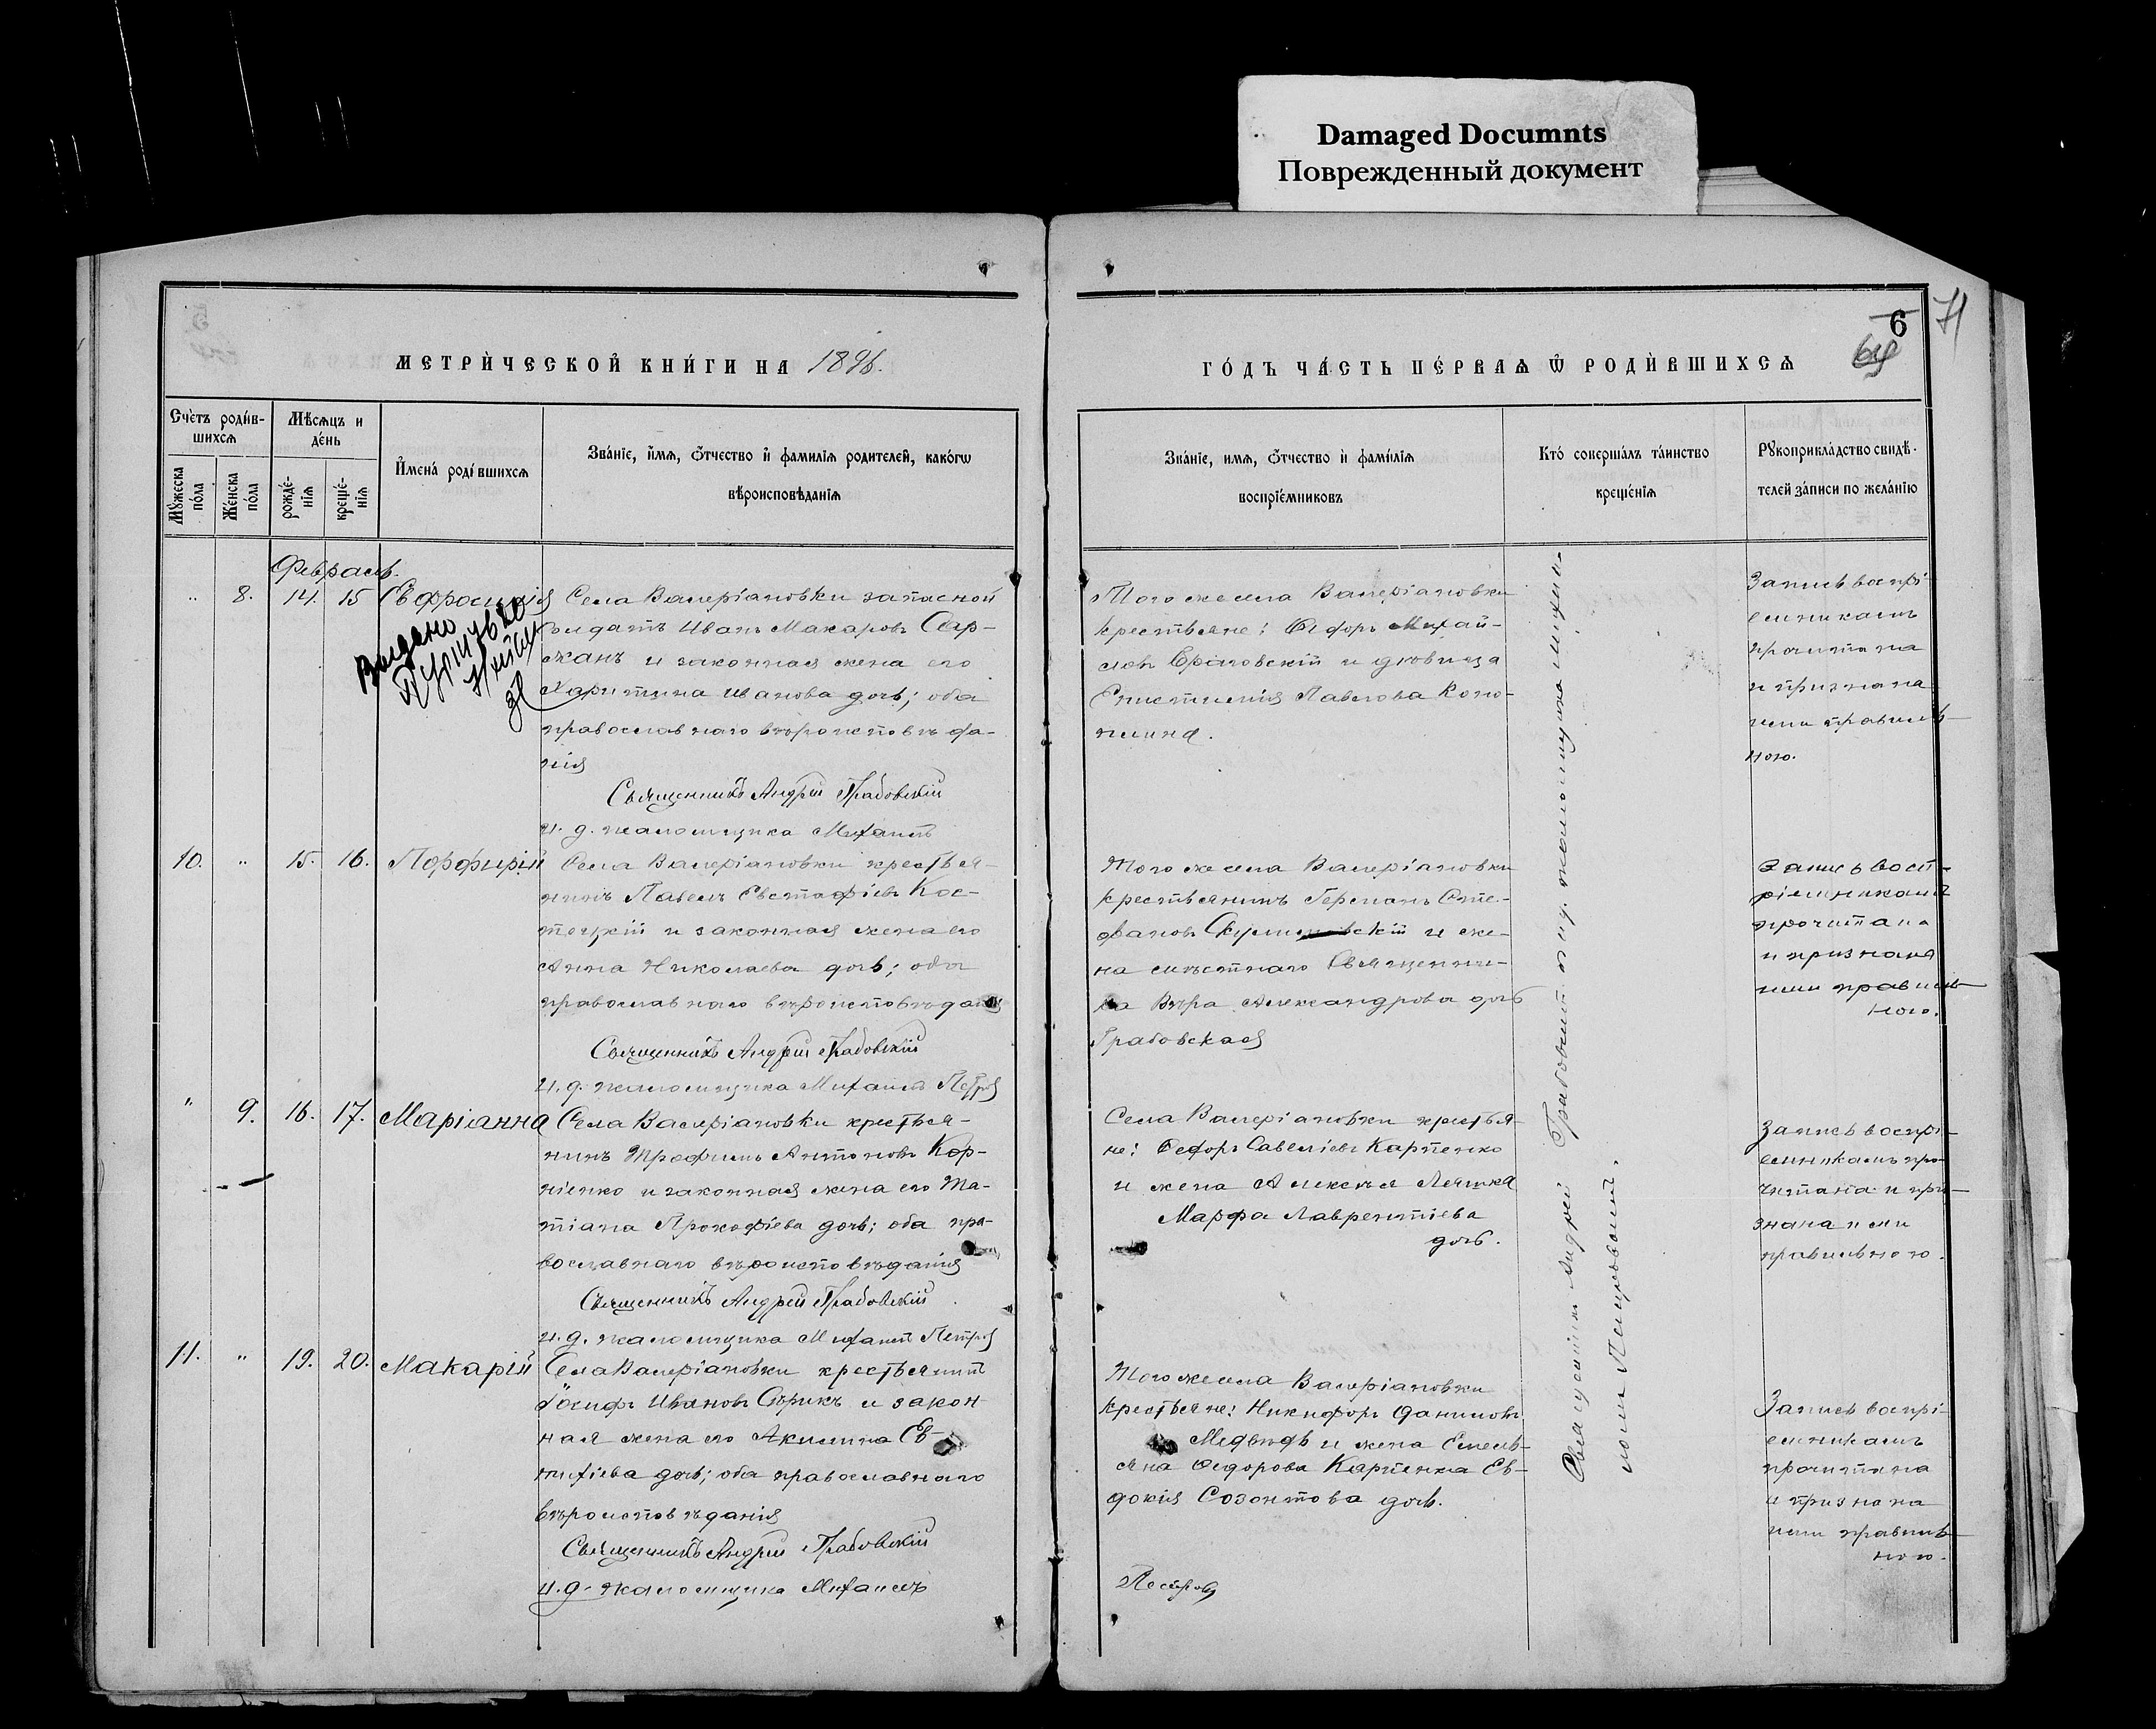 Damaged Documnts
Поврежденный документ
6
71
МЕТРИ́ЧЕСКОЙ КНИ́ГИ НА 1896.
ГО́ДЪ ЧА́СТЬ ПЕ́РВАѦ Ѿ РОДИ́ВШИХСѦ
Счетъ роди́в-
шихсѧ
Мꙋжеска по́ла
Же́нска по́ла
Мѣсѧцъ и
де́нь
рожде́-
нїѧ
креще́-
нїѧ
И҆мена̀ роди́вшихсѧ
Зва́нїе, и҆́мѧ, ѻ҆́тчество и҆ фами́лїѧ роди́телей, како́гѡ
вѣроисповѣ́данїѧ
Зва́нїе, имѧ, ѻ҆́тчество и҆ фами́лїѧ
воспрїе́мниковъ
Кто́ соверша́лъ та́инство
креще́нїѧ
Рꙋкоприкла́дство свидѣ́-
телей за́писи по жела́нїю
Февраль.
" 8. 14. 15 Евфросинія
Села Валеріановки запасной
солдатъ Иванъ Макаровъ Сар-
жанъ и законная жена его
Харитина Иванова дочь; оба
православнаго вѣроисповѣда-
нія
Священникъ Андрей Грабовскій
и. д. псаломщика Михаилъ
Выдано
Того же села Валеріановки
крестьяне: Ѳедоръ Михай-
ловъ и дѣвица
Епистимія Павлова Коно-
нмина.
Запись воспрі-
емникамъ
прочитана
и признана
ими правиль-
ною.
10. " 15. 16. Порфирій
Села Валеріановки крестья-
нинъ Павелъ Евстафіевъ Кос-
тецкій и законная жена его
Анна Николаева дочь; оба
православнаго вѣроисповѣданія
Священникъ Андрей Грабовскій
и. д. псаломщика Михаилъ Петров
Того же села Валеріановки
крестьянинъ Германъ Сте-
фановъ и же-
на мѣстнаго Священни-
ка Вѣра Александрова дочь
Грабовская
Запись восп-
ріемникамъ
прочитана
и признана
ими правиль-
ною.
" 9. 16. 17. Маріанна
Села Валеріановки крестья-
нинъ Трофимъ Антоновъ Кор-
ніенко и законная жена его Та-
тіана Прокофіева дочь; оба пра-
вославнаго вѣроисповѣданія
Священникъ Андрей Грабовскій
и. д. псаломщика Михаилъ Петров
Села Валеріановки крестья-
не: Ѳедоръ Савеліевъ Карпенко
и жена Алексѣя Ляшка
Марфа Лаврентіева
дочь.
Запись воспрі-
емникамъ про-
читана и при-
знана ими
правильною.
11. " 19. 20. Макарій
Села Валеріановки крестьянинъ
Іосифъ Ивановъ Сѣрикъ и закон-
ная жена его Акилина Ев-
тихіева дочь; оба православнаго
вѣроисповѣданія
Священникъ Андрей Грабовскій
и. д. псаломщика Михаилъ
Того же села Валеріановки
крестьяне: Никифоръ Даниловъ
Медвѣдь и жена Емель-
яна Ѳедорова Карпенка Ев-
докія Созонтова дочь.
Петров
Запись воспрі-
емникамъ
прочитана
и признана
ими правиль-
ною.
Священникъ Андрей Грабовскій съ и. д. псаломщика Миха-